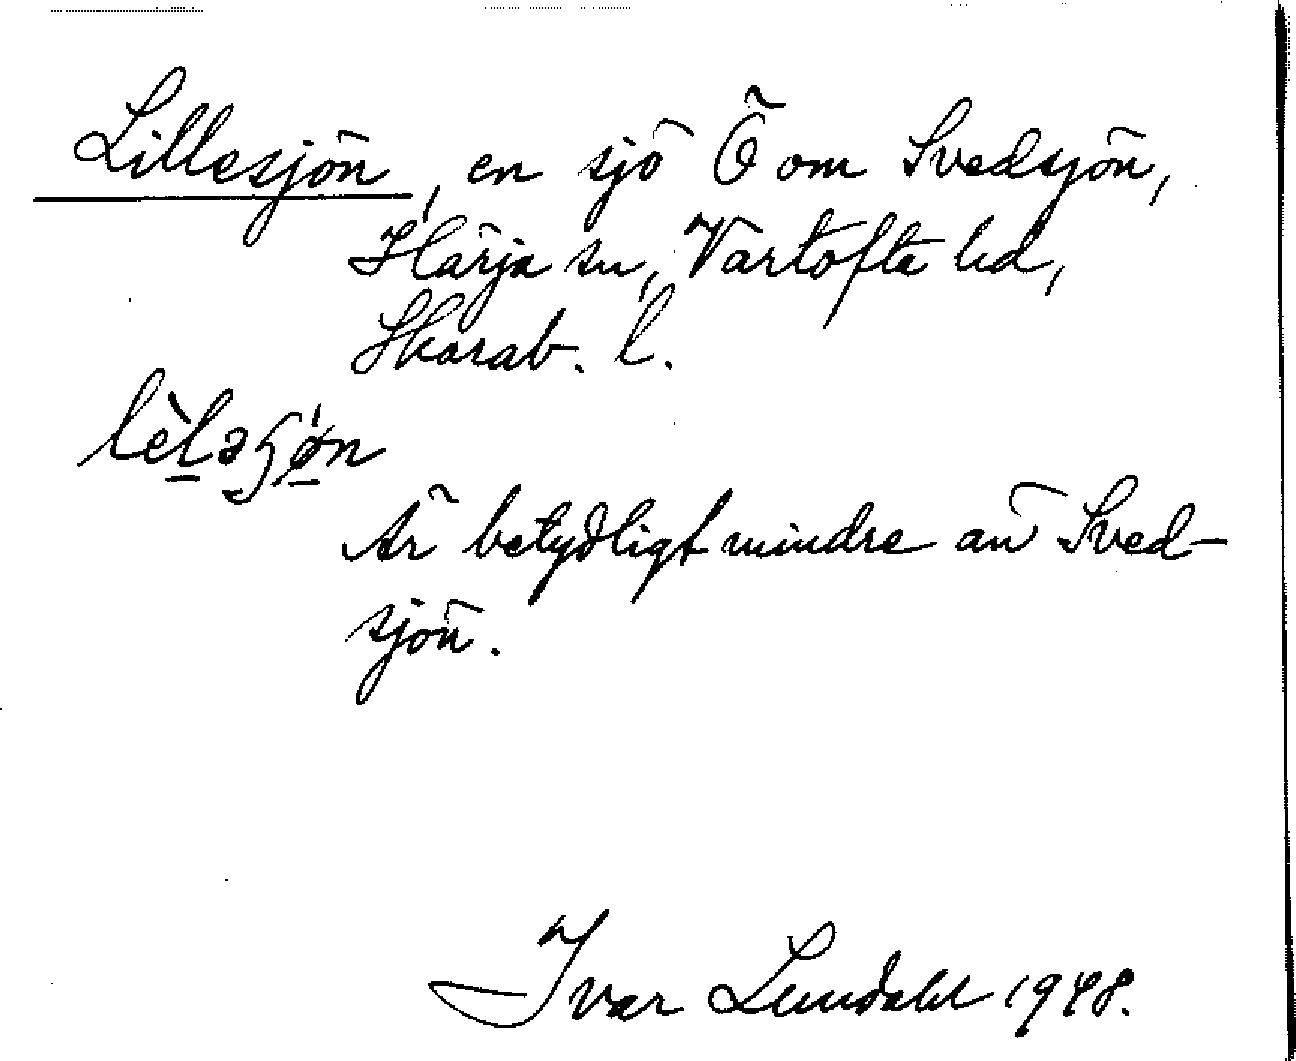 Lillesjön, en sjö Ö om Svedsjön,
Härja sn, Vartofta hd,
Skarab. l.
lèləʂǿn
Är betydligt mindre än Sved-
sjön.
Ivar Lundahl 1948.